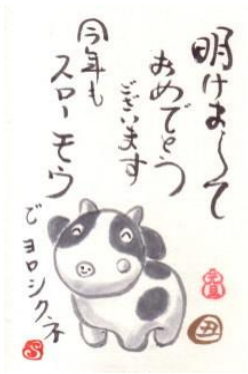 明けまして
おめでとう
ございます
今年も
スローモウ
で ヨロシクネ
元旦
丑